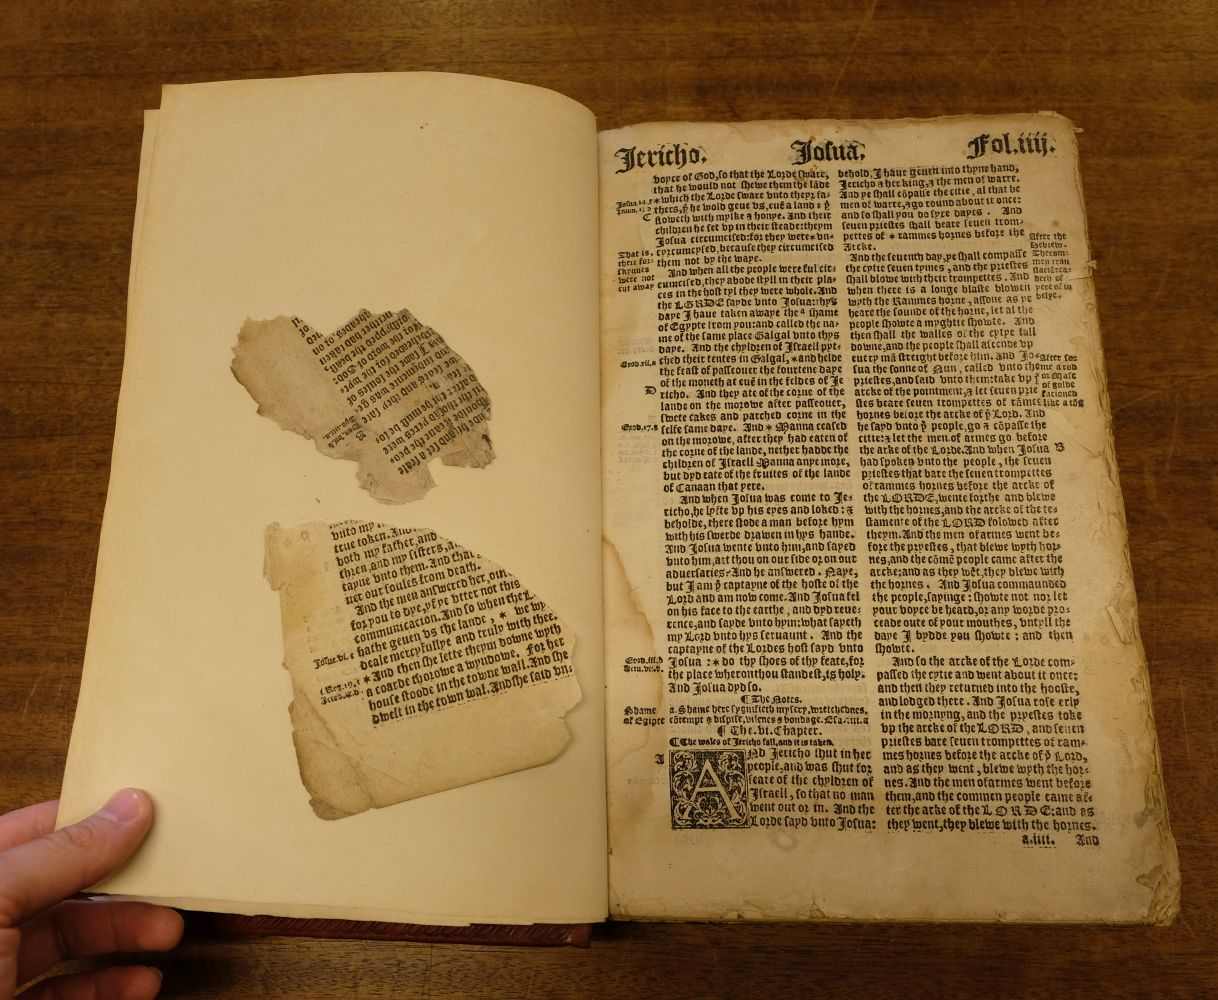 vnto my
true token. And
both my father, and
thren, and my sisters, a
tayne vnto them. And that
uer our soules from death.
And the men answered her, our
for you to dye, yf ye vtter not this
communicacion. And so when the L
hathe geuen vs the lande, * we wy
deale mercyfullye and truly with thee.
* And then she lette theym downe wyth
a coarde thorowe a wyndowe. For her
house stoode in the towne wall. And she
dwelt in the town wal. And she said vn-
Jericho. Josua. Fol.iiij.
voyce of God, so that the Lorde sware,
that he would not shewe them the lāde
* which the Lorde sware vnto theyr fa-
thers, ẏ he wold geue vs, euē a land: ẏ
floweth with mylke & honye. And their
children he set vp in their steade: theym
Josua circumcised: for they were * vn-
cyrcumcysed, because they circumcised
them not by the waye.
And when all the people were ful cir-
cumcised, they abode styll in their pla-
ces in the host tyl they were whole. And
the LORDE sayde vnto Josua: thys
daye I haue taken awaye the a shame
of Egypte from you: and called the na-
me of the same place Galgal vnto thys
daye. And the chyldren of Israell pyt-
ched their tentes in Galgal, * and helde
the feast of passeouer the fourtene daye
of the moneth at euē in the feldes of Je
richo. And they ate of the corne of the
lande on the morowe after passeouer,
swete cakes and parched corne in the
selfe same daye. And * Manna ceased
on the morowe, after they had eaten of
the corne of the lande, nether hadde the
children of Israell Manna anye more,
but dyd eate of the fruites of the lande
of Canaan that yere.
And when Josua was come to Je-
richo, he lyfte vp his eyes and loked: &
beholde, there stode a man before hym
with his swerde drawen in hys hande.
And Josua wente vnto him, and sayed
vnto him, art thou on our side or on our
aduersaries? And he answered. Naye,
but I am ẏ captayne of the hoste of the
Lord and am now come. And Josua fel
on his face to the earthe, and dyd reue-
rence, and sayde vnto hym: what sayeth
my Lord vnto hys seruaunt. And the
captayne of the Lordes host sayd vnto
Josua: * do thy shoes of thy feate, for
the place wheron thou standest, is holy.
And Josua dyd so.
¶ The Notes.
a. Shame here sygnifieth mysery, wretchednes,
cōtempt & dispise, vilenes & bondage. Esa.iiii.a
¶ The.vi.Chapter.
¶ The wales of Jericho fall, and it is taken.
AND Jericho shut in her
people, and was shut for
feare of the chyldren of
Israell, so that no man
went out or in. And the
Lorde sayd vnto Josua:
That is,
their for-
skynnes
were not
cut away
C
D
Exod.xii.a
Exod.17.g
Exod.iii.b
Shame
of Egipte
A
behold, I haue geuen into thyne hand,
Jericho & her king, & the men of warre.
And ye shall cōpasse the citie, al that be
men of warre, & go round about it once:
and so shall you do syxe dayes. And
seuen priestes shall beare seuen trom-
pettes of * rammes hornes before the
Arcke.
And the seuenth day, ye shall compasse
the cytie seuen tymes, and the priestes
shall blowe with their trompettes. And
when there is a longe blaste blowen
wyth the Rammes horne, assone as ye
heare the sounde of the horne, let al the
people showte a myghtie showte. And
then shall the walles of the cytye fall
downe, and the people shall ascende vp
euery mā streight before him. And Jo-
sua the sonne of Nun, called vnto the
priestes, and said vnto them: take vp ẏ
arcke of the pointment, & let seuen prie-
stes beare seuen trompettes of rāmes
hornes before the arcke of ẏ Lord. And
he sayd vnto ẏ people, go & cōpasse the
citie: & let the men of armes go before
the arke of the Lorde. And when Josua
had spoken vnto the people, the seuen
priestes that bare the seuen trompettes
of rammes hornes before the arcke of
the LORDE, wente forthe and blewe
with the hornes, and the arcke of the te-
stamente of the LORD folowed after
theym. And the men of armes went be-
fore the pryestes, that blewe wyth hor-
nes, and the cōmē people came after the
arcke: and as they wēt, they blewe with
the hornes. And Josua commaunded
the people, sayinge: showte not nor let
your voyce be heard, or any worde pro-
ceade oute of your mouthes, vntyll the
daye I bydde you showte: and then
showte.
And so the arcke of the Lorde com-
passed the cytie and went about it once:
and then they returned into the hooste,
and lodged there. And Josua rose erly
in the mornyng, and the pryestes toke
vp the arcke of the LORD, and seuen
priestes bare seuen trompettes of ram-
mes hornes before the arcke of ẏ Lord,
and as they went, blewe wyth the hor-
nes. And the men of armes went before
them, and the commen people came af-
ter the arke of the LORDE: and as
they went, they blewe with the hornes.
After the
Hebrew.
B
a.iiii. And